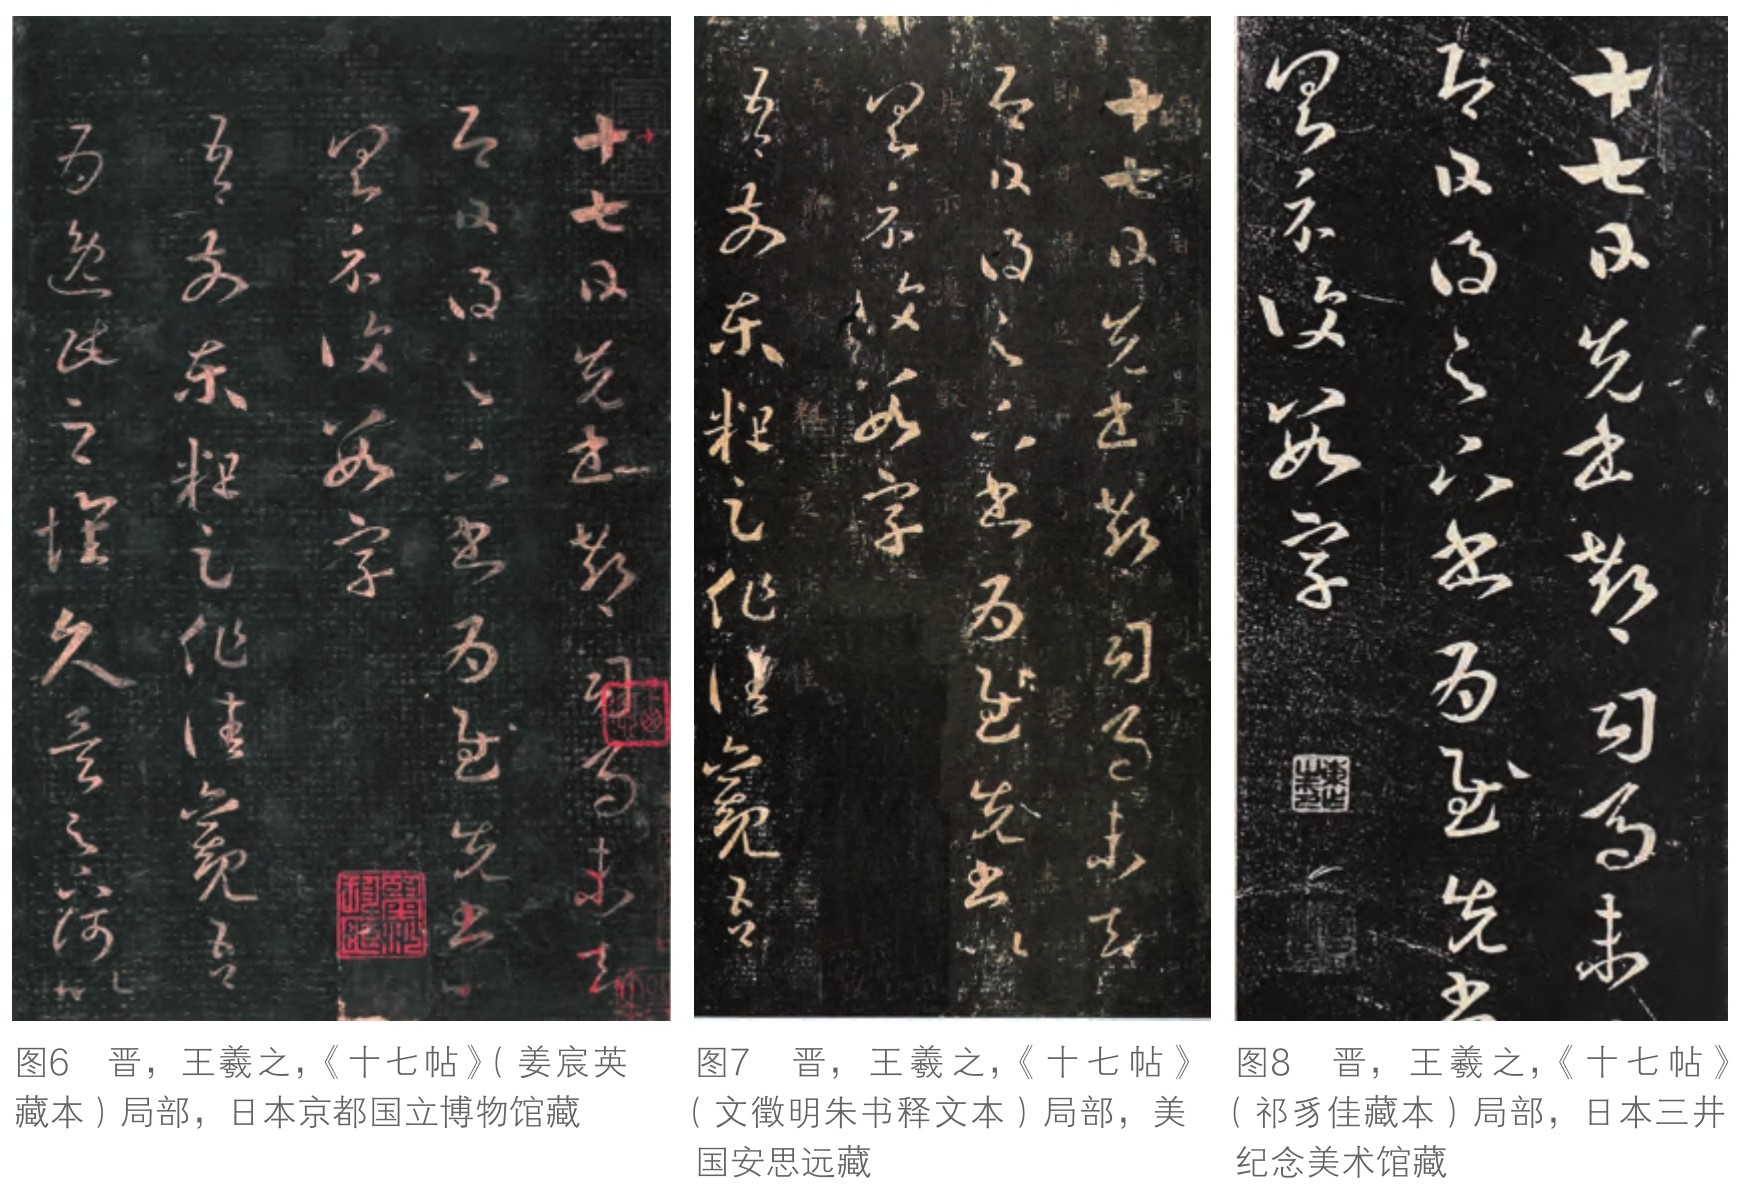 十七日先書郗司馬未去
即日得足下書為慰先書以
具示復數字
吾前東粗足作佳觀吾
為逸民之懷久矣足下何以
图6 晋，王羲之，《十七帖》（姜宸英
藏本）局部，日本京都国立博物馆藏
十七日先書郗司馬未去
即日得足下書為慰先書以
具示復數字
吾前東粗足作佳觀吾
图7 晋，王羲之，《十七帖》
（文徵明朱书释文本）局部，美
国安思远藏
十七日先書郗司馬未
即日得足下書為慰先書
具示復數字
图8 晋，王羲之，《十七帖》
（祁豸佳藏本）局部，日本三井
纪念美术馆藏